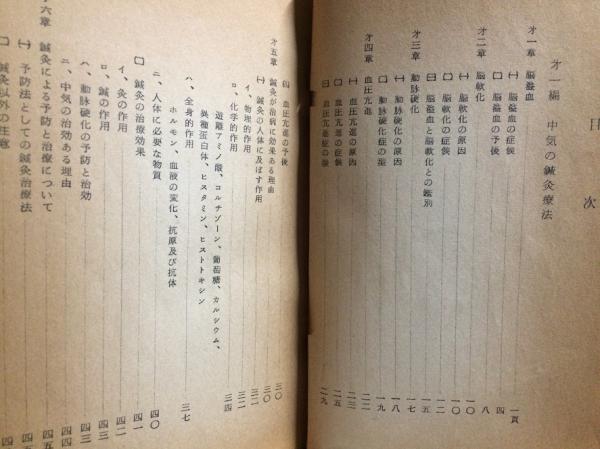 目次
才一編 中気の鍼灸療法
才一章 脳溢血 一頁
㈠ 脳溢血の症候 四
㈡ 脳溢血の予後 八
才二章 脳軟化 一〇
㈠ 脳軟化の原因 一〇
㈡ 脳軟化の症候 一二
㈢ 脳溢血と脳軟化との鑑別 一五
才三章 動脈硬化 一七
㈠ 動脈硬化の原因 一八
㈡ 動脈硬化症の
才四章 血圧亢進 二二
㈠ 血圧亢進の原因 二三
㈡ 血圧亢進の症候 二五
㈢ 血圧亢進症の 二九
㈣ 血圧亢進の予後 三〇
才五章 鍼灸が治病に効果ある理由 三一
㈠ 鍼灸の人体に及ぼす作用 三一
イ、物理的作用 三二
ロ、化学的作用 三四
遊離アミノ酸、コルチゾーン、葡萄糖、カルシウム、
異種蛋白体、ヒスタミン、ヒストトキシン
ハ、全身的作用 三七
ホルモン、血液の変化、抗原及び抗体
ニ、人体に必要な物質 四〇
㈡ 鍼灸の治療効果 四一
イ、灸の作用 四二
ロ、鍼の作用 四三
ハ、動脈硬化の予防と治効 四三
ニ、中気の治効ある理由 四四
才六章 鍼灸による予防と治療について 四五
㈠ 予防法としての鍼灸治療法 四五
㈡ 鍼灸以外の注意